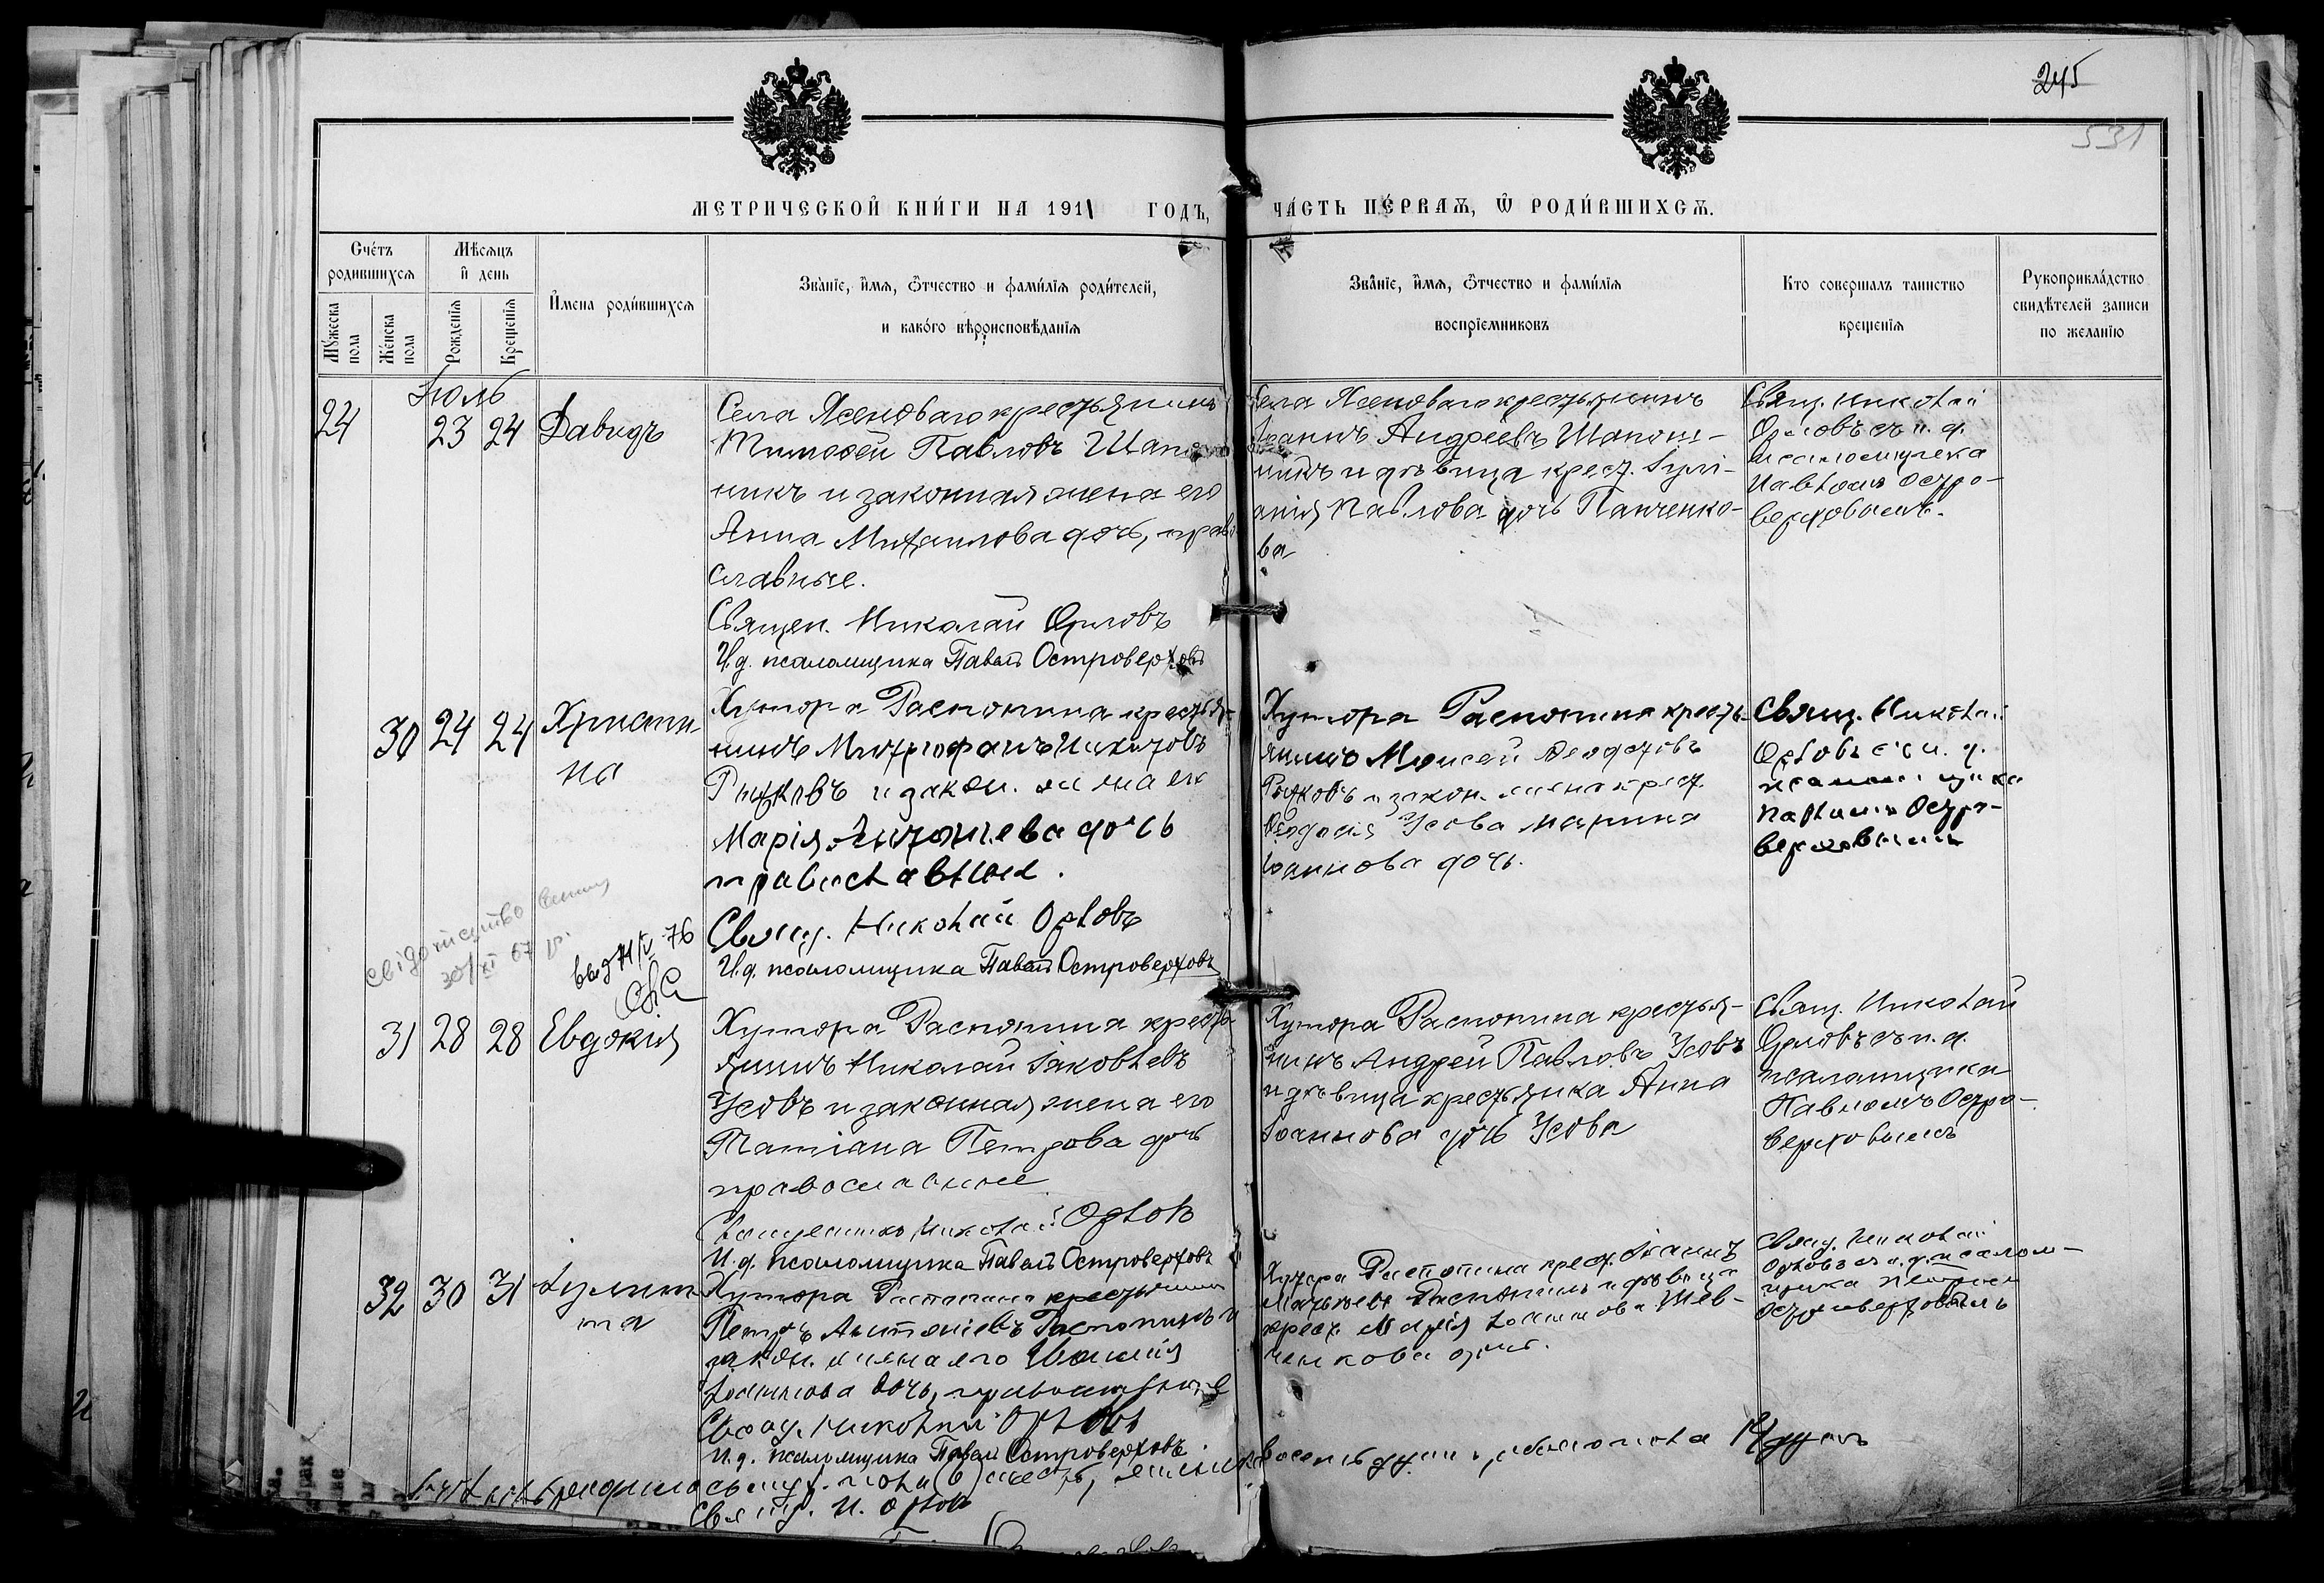 245
531
МЕТРИЧЕСКОЙ КНИ́ГИ НА 1911 ГОДЪ,
ЧА́СТЬ ПЕ́РВАѦ, Ѡ РОДИ́ВШИХСѦ.
Счéтъ родившихсѧ
Мѣсѧцъ и҆ день
И҆мена роди́вшихсѧ
Зва́нїе, и҆мѧ, ѻ҆тчество и фами́лїѧ роди́телей,
и како́го вѣроисповѣ́данїѧ
Зва́нїе, и҆мѧ, ѻ҆тчество и фами́лїѧ
воспрїемниковъ
Кто совершалъ таинство
крещенїѧ
Рукоприкла́дство
свидѣтелей записи
по желанїю
Му́жеска пола
Же́нска пола
Рожденїѧ
Крещенїѧ
Іюль
24 23 24 Давидъ
Села Ясеноваго крестьянинъ
Тимофей Павловъ Шапош
никъ и законная жена его
Анна Михаилова дочь, право
славные.
Священ. Николай Орловъ
И.д. псаломщика Павелъ Островерховъ
Села Ясеноваго крестьянинъ
Іоаннъ Андреевъ Шапош-
никъ и дѣвица крест. Іулі-
анія Павлова дочь Панченко-
ва
Свящ. Николай
Орловъ съ и. д.
псаломщика
Павломъ Остро-
верховымъ.
30 24 24 Христи
на
Хутора Распопина крестья-
нинъ Митрофанъ Никитовъ
Рыжковъ и закон. жена его
Марія Антоніева дочь
православные.
Свящ. Николай Орловъ
И.д. псаломщика Павелъ Островерховъ
Хутора Распопина кресть-
янинъ Моисей Феодотовъ
закон. жена крест.
Феодосія Усова Марина
Іоаннова дочь.
Свящ. Николай
Орловъ съ и. д.
псаломщика
Павломъ Остро-
верховымъ
30/XI 67 р.
выд 14/IV-76
31 28 28 Евдокія
Хутора Распопина кресть
янинъ Николай Іаковлевъ
Усовъ и законная жена его
Татіана Петрова дочь
православные
Священникъ Николай Орловъ
И.д. псаломщика Павелъ Островерховъ
Хутора Распопина крестья-
нинъ Андрей Павловъ Усовъ
и дѣвица крестьянка Анна
Іоаннова дочь Усова
Свящ. Николай
Орловъ съ и. д.
псаломщика
Павломъ Остро-
верховымъ
32 30 31 Іулит
та
Хутора Распопина крестьянинъ
Петръ Антоніевъ Распопинъ и
закон. жена его
Іоаннова дочь, православные
Свящ. Николай Орловъ
И.д. псаломщика Павелъ Островерховъ
Хутора Распопина крест. Іоаннъ
Матвѣевъ Распопинъ и дѣвица
крест. Марія Іоаннова Шев-
ченкова дочь.
Свящ. Николай
Орловъ и. д. псалом-
щика
Островерховымъ
родилось муж. пола (6) шесть, женска восемь душ обоего пола 14 душъ
Свящ. Н. Орловъ